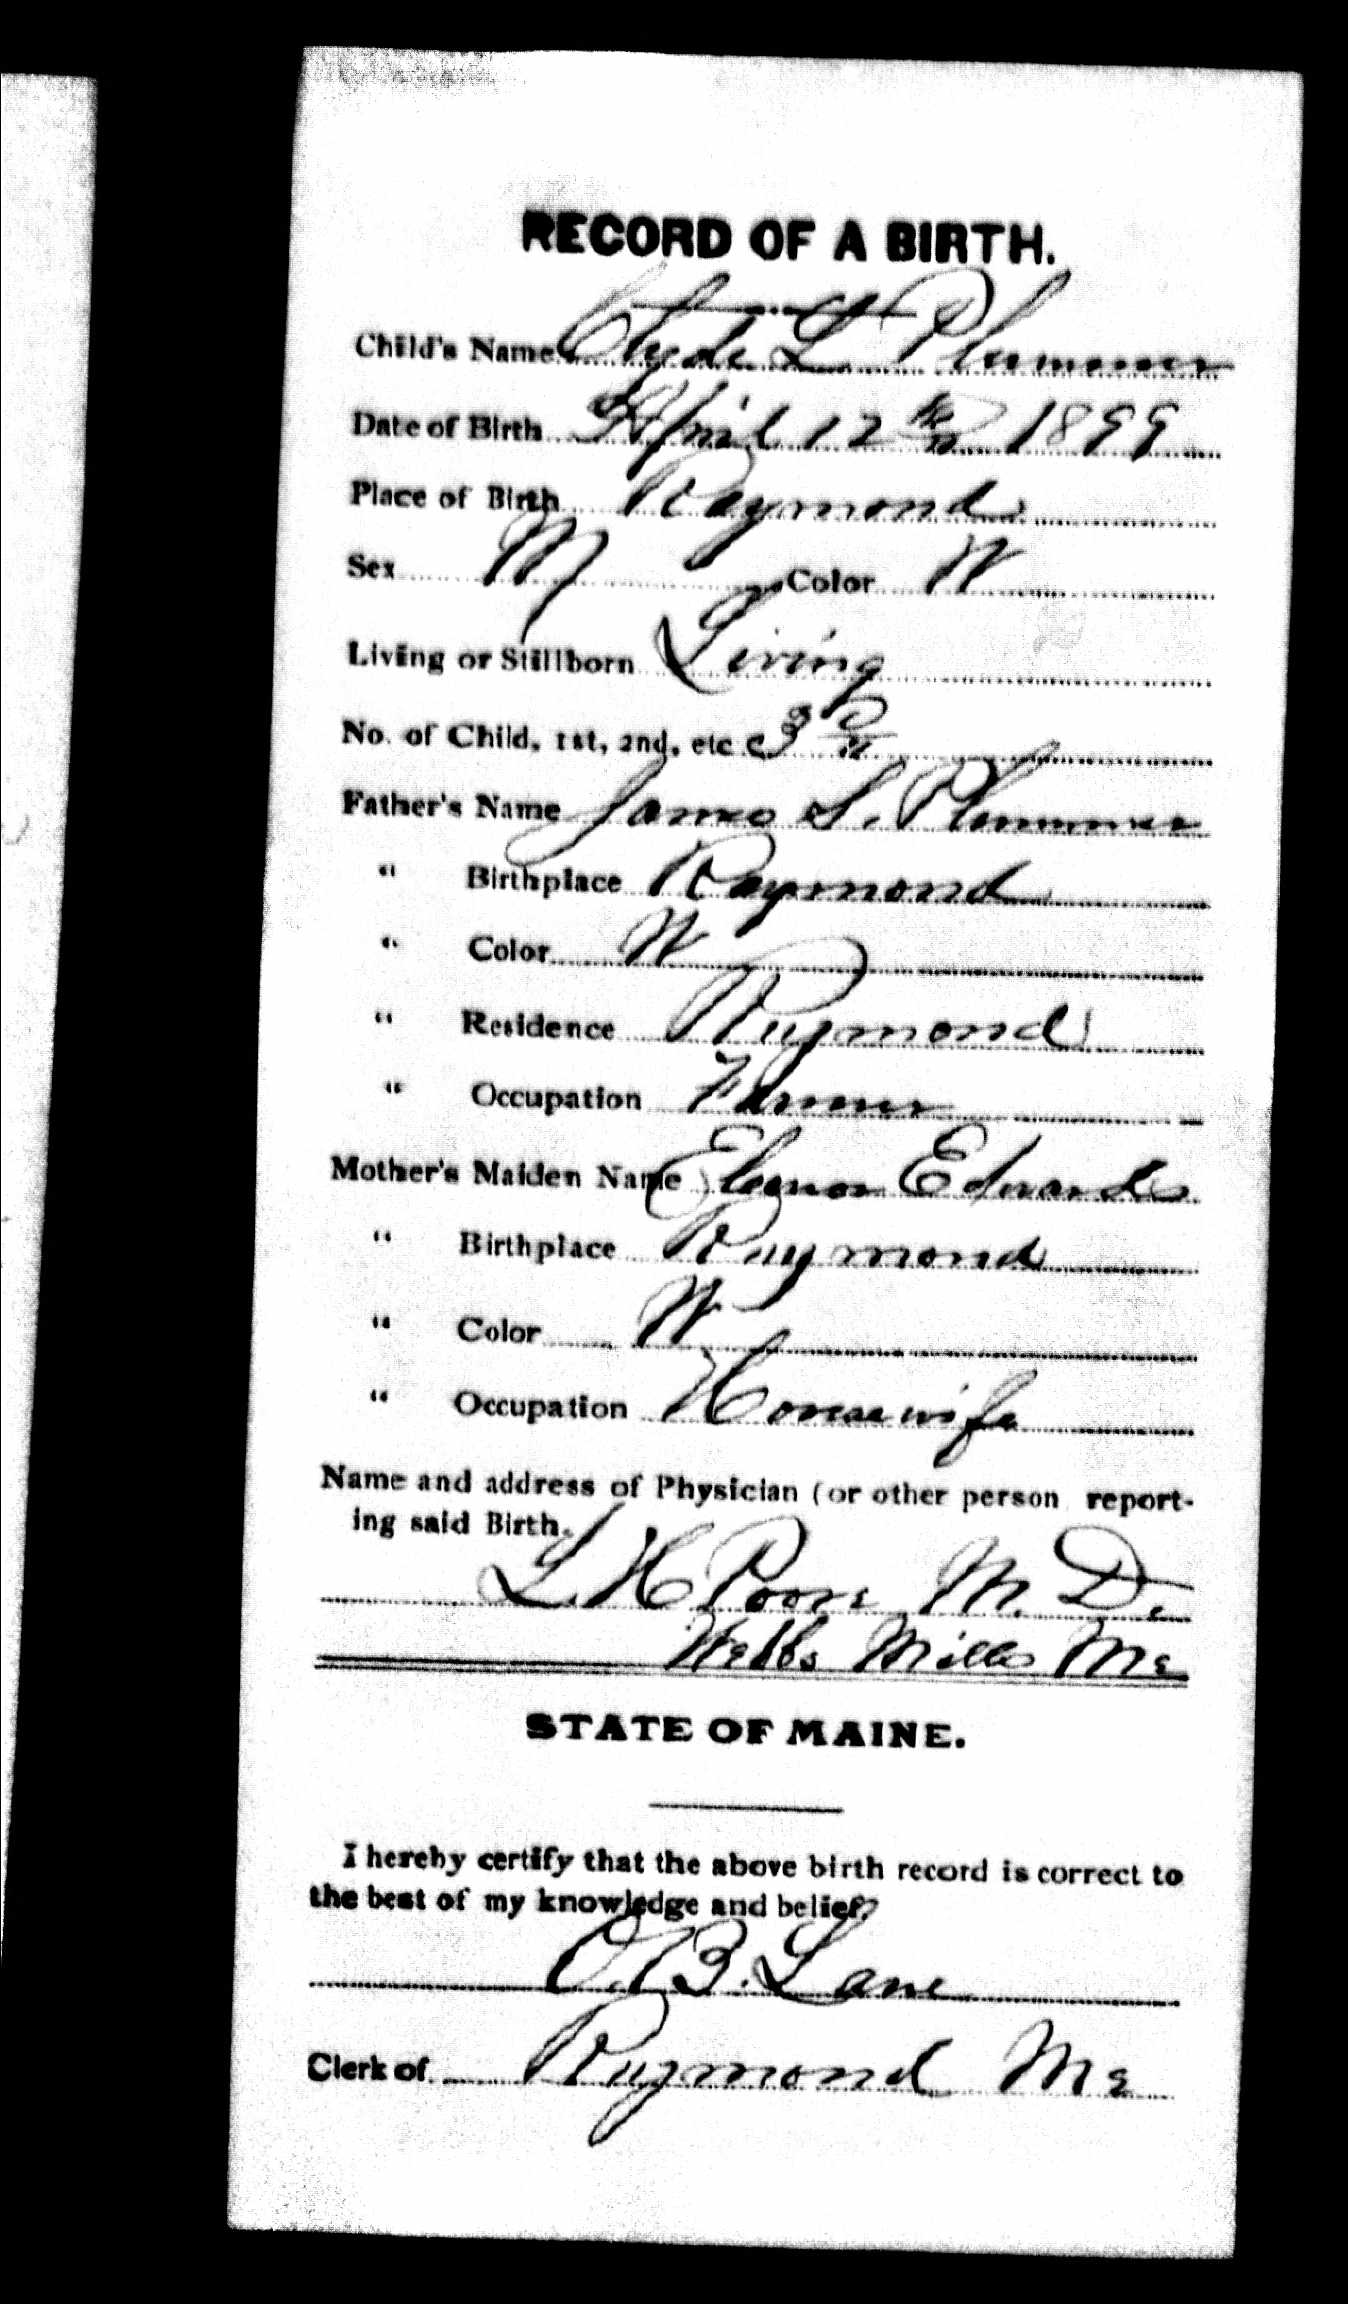 RECORD OF A BIRTH.
Child's Name Clyde L Plummer
Date of Birth April 12th 1899
Place of Birth Raymond
Sex M Color W
Living or Stillborn Living
No. of Child, 1st, 2nd, etc 3d
Father's Name James S. Plummer
" Birthplace Raymond
" Color W
" Residence Raymond
" Occupation Farmer
Mother's Maiden Name Elenor Edwards
" Birthplace Raymond
" Color W
" Occupation Housewife
Name and address of Physician (or other person report-
ing said Birth.
L. H Poore M. D.
Webbs Mills Me
STATE OF MAINE.
I hereby certify that the above birth record is correct to
the best of my knowledge and belief.
O. B. Lane
Clerk of Raymond Me